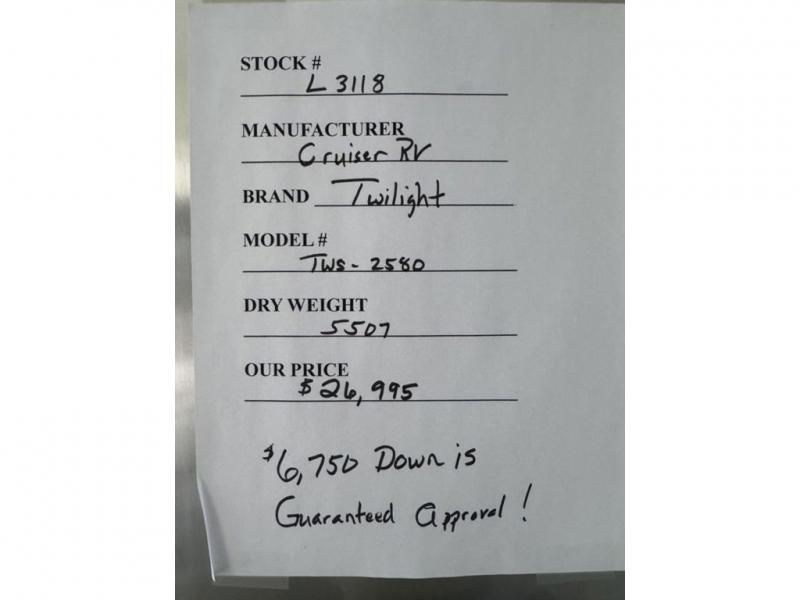 STOCK #
L 3118
MANUFACTURER
Cruiser RV
BRAND Twilight
MODEL #
TWS - 2580
DRY WEIGHT
5507
OUR PRICE
$26,995
$6,750 Down is
Guaranteed Approval!